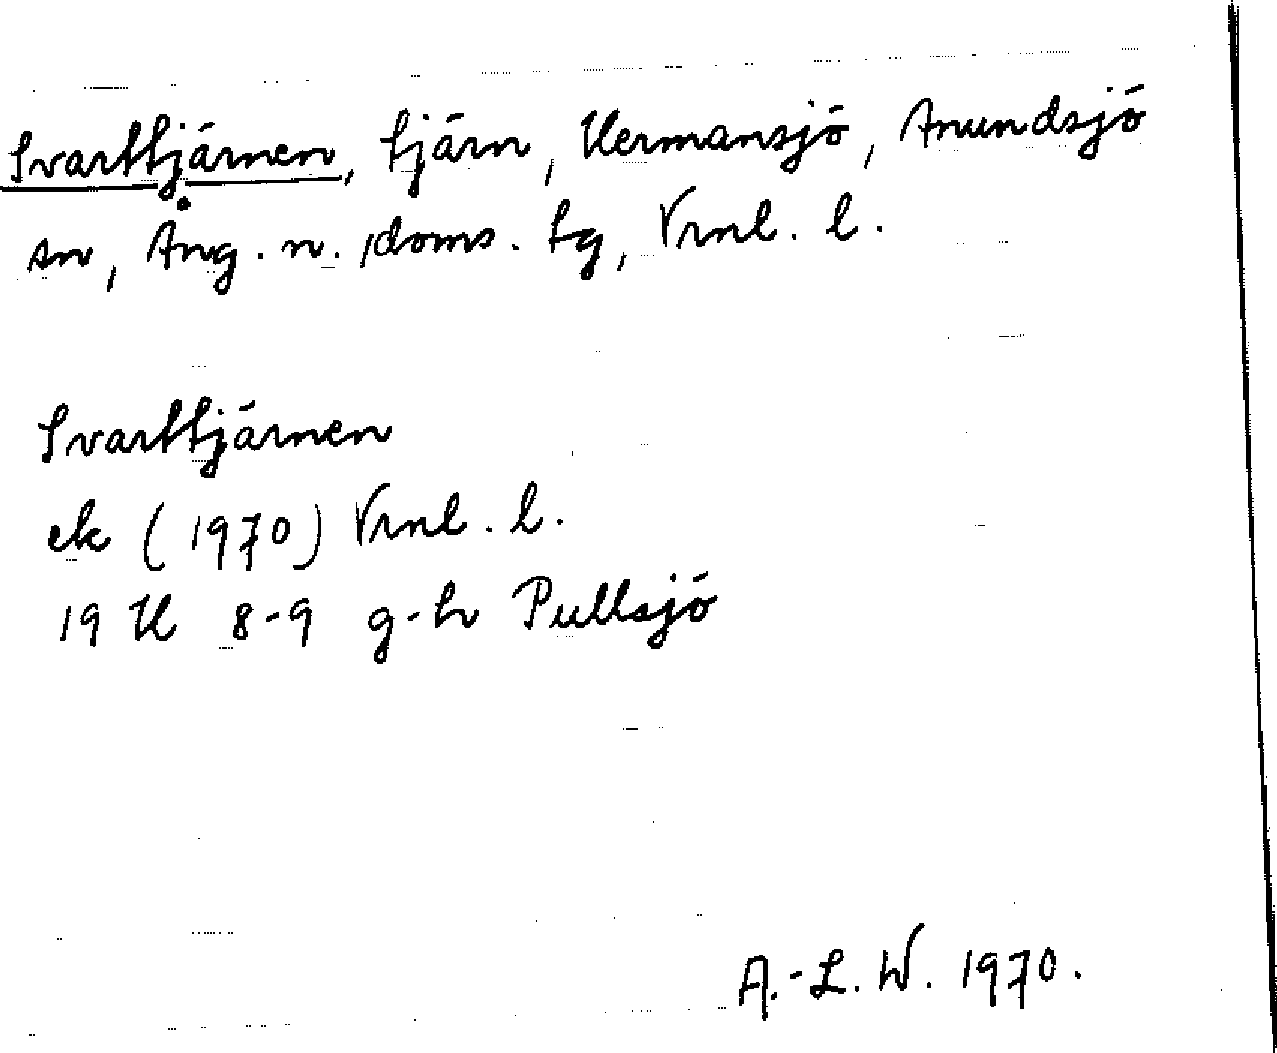 Svarttjärnen, tjärn, Hermansjö, Anundsjö
sn, Ång. n. doms. tg, Vrnl. l.
Svarttjärnen
ek (1970) Vrnl. l.
19 H 8-9 g-h Pullsjö
A.-L. W. 1970.